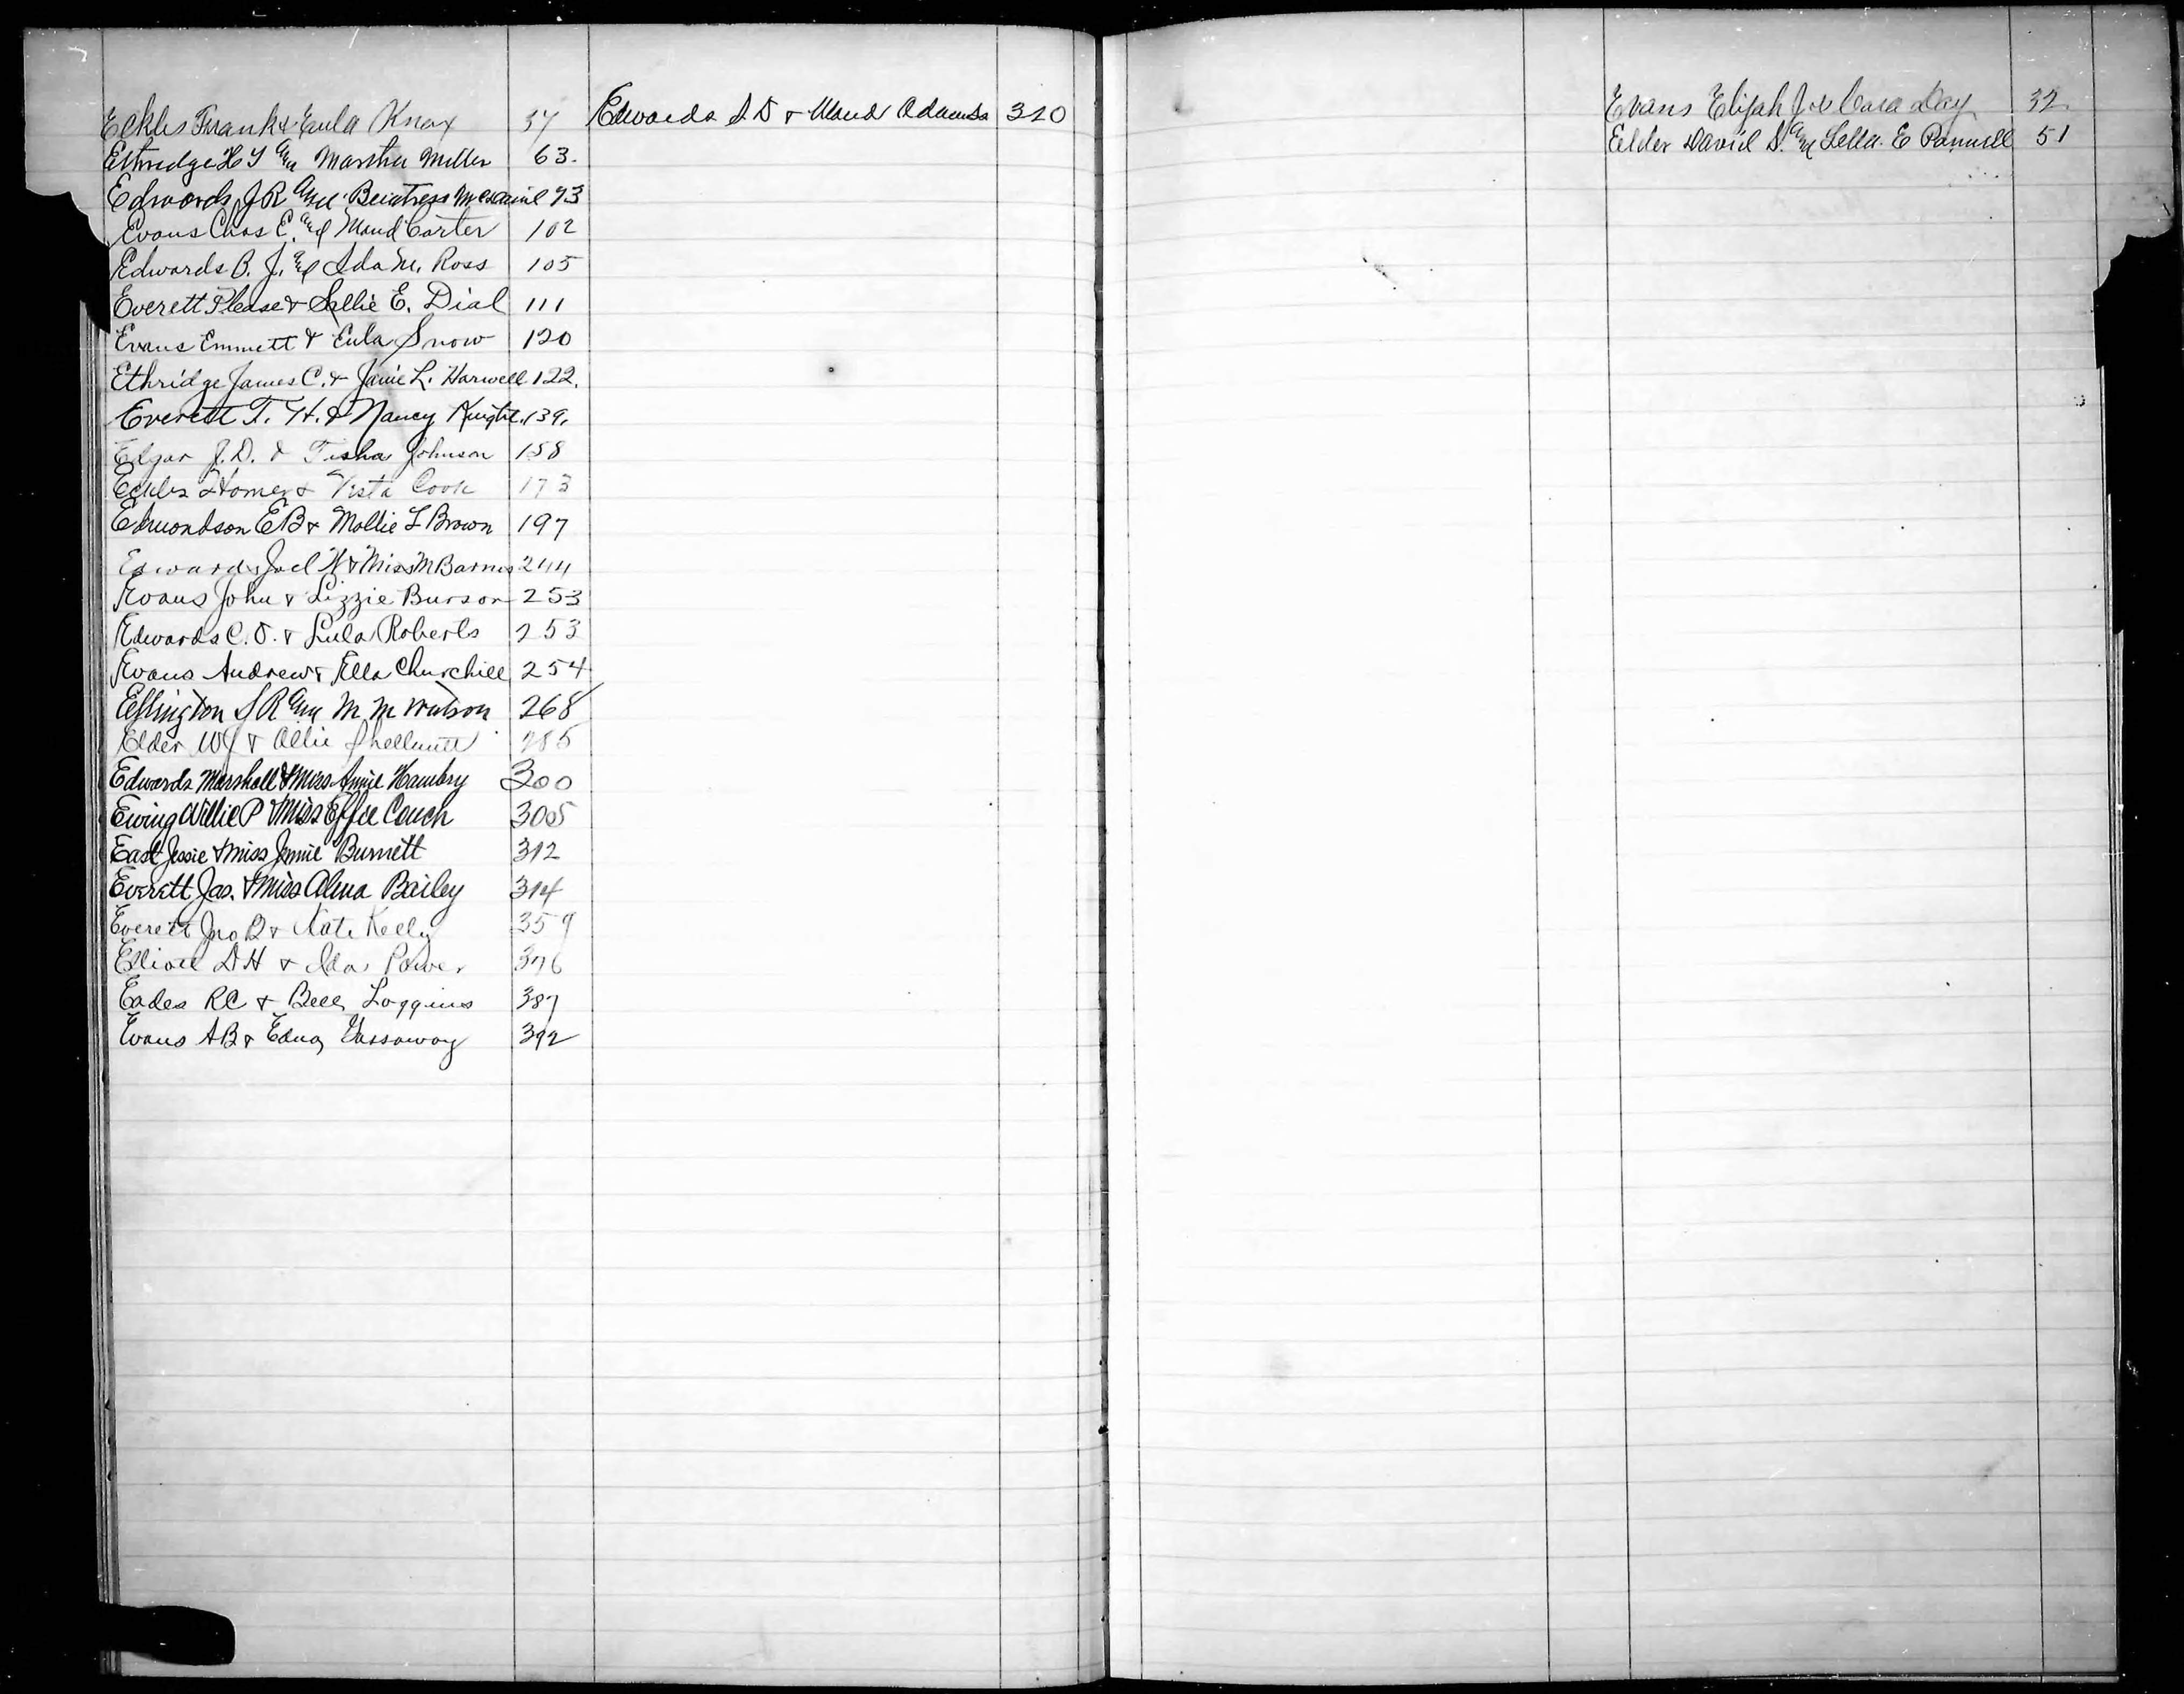 Eckles Frank & Eula Knox 37
Ethridge H Y and Martha Miller 63.
Edwards J R and Beintress McDaniel 93
Evans Chas E. and Maud Carter 102
Edwards B. J. and Ida M. Ross 105
Everett Please & Sallie E. Dial 111
Evans Emmett & Eula Snow 120
Ethridge James C. & Janie L. Harwell 122.
Everett T. H. & Nancy Knight. 139.
Edgar J. D. & Tisha Johnson 158
Eckles Homer & Vista Cook 173
Edmondson E B & Mollie L Brown 197
Edwards Joel W & Miss M Barnes 244
Evans John & Lizzie Burson 253
Edwards C. O. & Lula Roberts 253
Evans Andrew & Ella Churchill 254
Effington S R and M M Watson 268
Elder W J & Ollie Shellnutt 285
Edwards Marshall & Miss Annie Hambry 300
Ewing Willie P & Miss Effie Couch 305
East Jessie & Miss Jennie Burnett 312
Everett Jas. & Miss Alma Bailey 314
Everett Jno B & Kate Kelly 359
Elliott D H & Ida Power 376
Eades RC & Bell Loggins 387
Evans A B & Edna Gassaway 392
Edwards S D & Maud Adams 320
Evans Elijah J & Cora Day 32
Eelder David S. and Lella. E Pannell 51